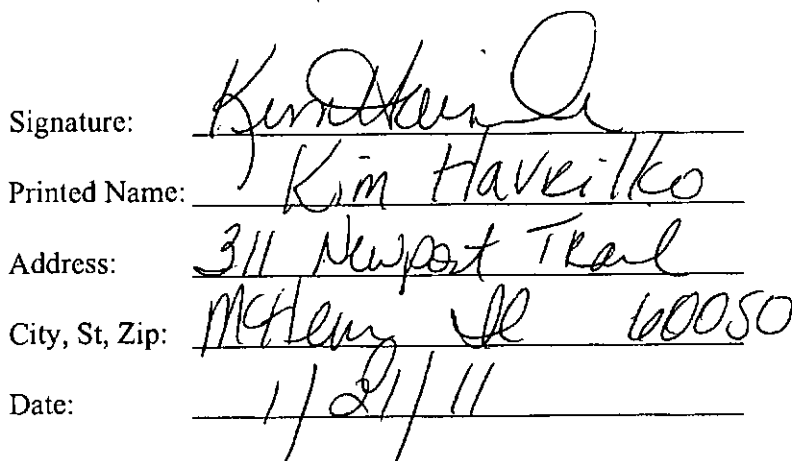 Signature: Kim
Printed Name: Kim Havrilko
Address: 311 Newport Trail
City, St, Zip: McHenry Il 60050
Date: 1/21/11